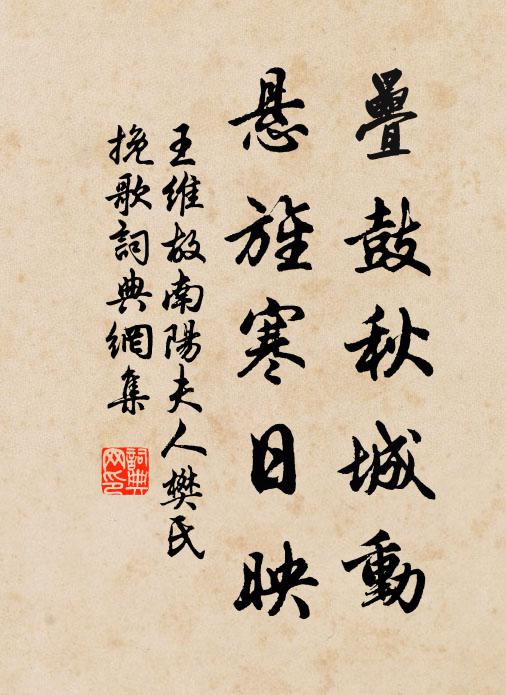 疊鼓秋城動
悬旌寒日映
王維故南陽夫人樊氏
挽歌詞典網集
詞典
网印